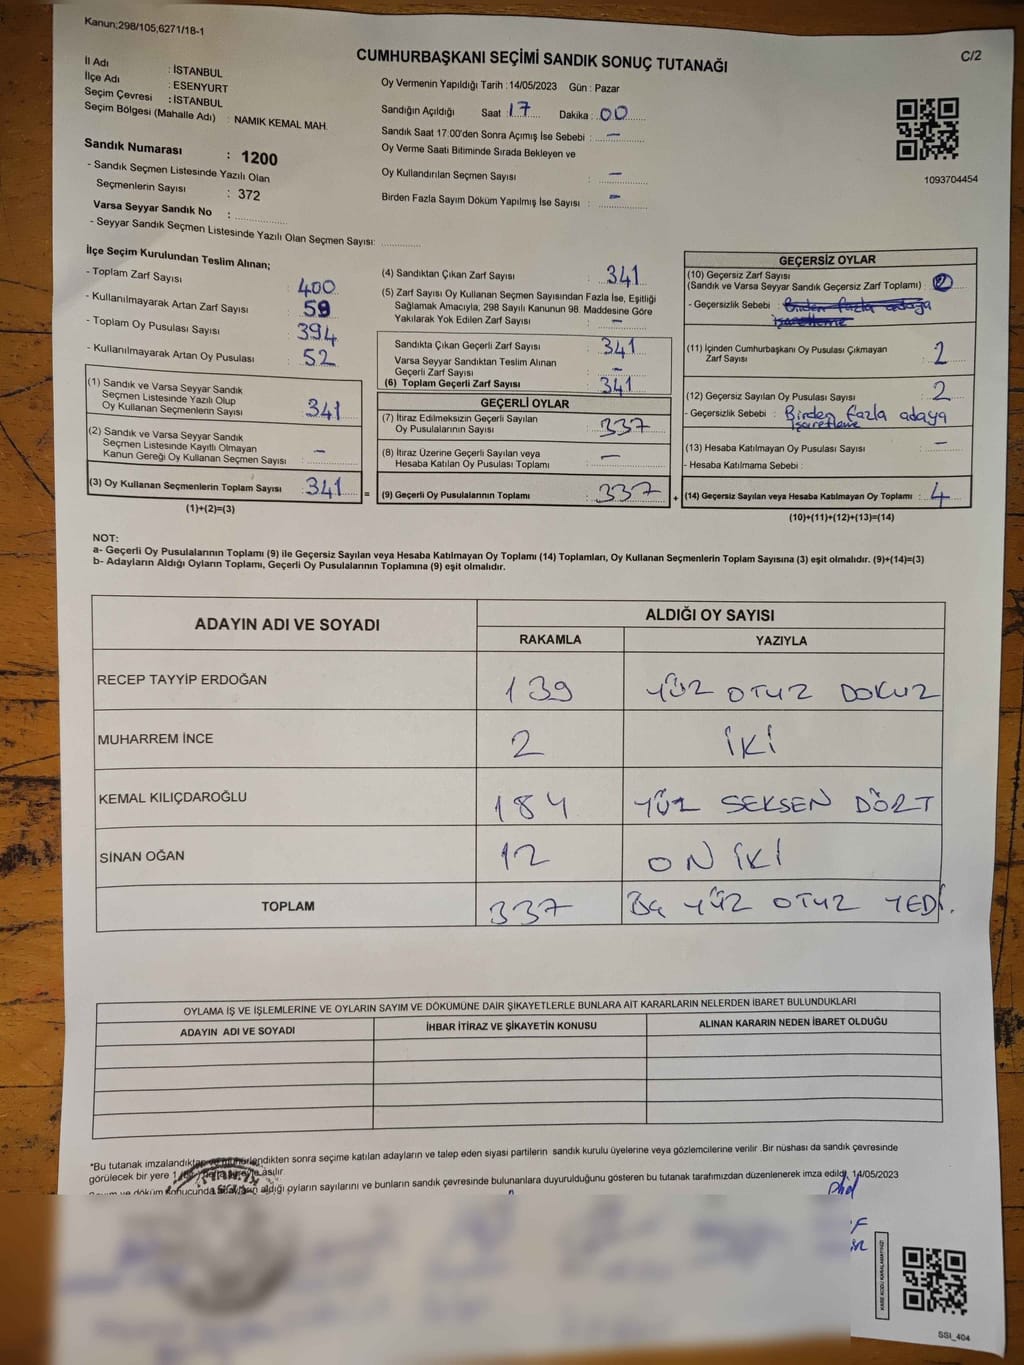 Kanun;298/105,6271/18-1
C/2
CUMHURBAŞKANI SEÇİMİ SANDIK SONUÇ TUTANAĞI
İl Adı : İSTANBUL
İlçe Adı : ESENYURT
Seçim Çevresi : İSTANBUL
Seçim Bölgesi (Mahalle Adı) : NAMIK KEMAL MAH.
Sandık Numarası : 1200
- Sandık Seçmen Listesinde Yazılı Olan
Seçmenlerin Sayısı : 372
Varsa Seyyar Sandık No :
- Seyyar Sandık Seçmen Listesinde Yazılı Olan Seçmen Sayısı:
Oy Vermenin Yapıldığı Tarih : 14/05/2023 Gün : Pazar
Sandığın Açıldığı Saat : 17 Dakika : 00
Sandık Saat 17:00'den Sonra Açımış İse Sebebi : —
Oy Verme Saati Bitiminde Sırada Bekleyen ve
Oy Kullandırılan Seçmen Sayısı : —
Birden Fazla Sayım Döküm Yapılmış İse Sayısı : —
1093704454
İlçe Seçim Kurulundan Teslim Alınan;
- Toplam Zarf Sayısı : 400
- Kullanılmayarak Artan Zarf Sayısı : 59
- Toplam Oy Pusulası Sayısı : 394
- Kullanılmayarak Artan Oy Pusulası : 52
(1) Sandık ve Varsa Seyyar Sandık
Seçmen Listesinde Yazılı Olup
Oy Kullanan Seçmenlerin Sayısı : 341
(2) Sandık ve Varsa Seyyar Sandık
Seçmen Listesinde Kayıtlı Olmayan
Kanun Gereği Oy Kullanan Seçmen Sayısı : —
(3) Oy Kullanan Seçmenlerin Toplam Sayısı : 341
(1)+(2)=(3)
=
(4) Sandıktan Çıkan Zarf Sayısı : 341
(5) Zarf Sayısı Oy Kullanan Seçmen Sayısından Fazla İse, Eşitliği
Sağlamak Amacıyla, 298 Sayılı Kanunun 98. Maddesine Göre
Yakılarak Yok Edilen Zarf Sayısı : —
Sandıkta Çıkan Geçerli Zarf Sayısı : 341
Varsa Seyyar Sandıktan Teslim Alınan
Geçerli Zarf Sayısı : —
(6) Toplam Geçerli Zarf Sayısı : 341
GEÇERLİ OYLAR
(7) İtiraz Edilmeksizin Geçerli Sayılan
Oy Pusulalarının Sayısı : 337
(8) İtiraz Üzerine Geçerli Sayılan veya
Hesaba Katılan Oy Pusulası Toplamı : —
(9) Geçerli Oy Pusulalarının Toplamı : 337
+
GEÇERSİZ OYLAR
(10) Geçersiz Zarf Sayısı
(Sandık ve Varsa Seyyar Sandık Geçersiz Zarf Toplamı) :
- Geçersizlik Sebebi : Birden fazla adaya
işaretleme
(11) İçinden Cumhurbaşkanı Oy Pusulası Çıkmayan
Zarf Sayısı : 2
(12) Geçersiz Sayılan Oy Pusulası Sayısı : 2
- Geçersizlik Sebebi : Birden fazla adaya
işaretleme
(13) Hesaba Katılmayan Oy Pusulası Sayısı : —
- Hesaba Katılmama Sebebi :
(14) Geçersiz Sayılan veya Hesaba Katılmayan Oy Toplamı : 4
(10)+(11)+(12)+(13)=(14)
NOT:
a- Geçerli Oy Pusulalarının Toplamı (9) ile Geçersiz Sayılan veya Hesaba Katılmayan Oy Toplamı (14) Toplamları, Oy Kullanan Seçmenlerin Toplam Sayısına (3) eşit olmalıdır. (9)+(14)=(3)
b- Adayların Aldığı Oyların Toplamı, Geçerli Oy Pusulalarının Toplamına (9) eşit olmalıdır.
ADAYIN ADI VE SOYADI ALDIĞI OY SAYISI
RAKAMLA YAZIYLA
RECEP TAYYİP ERDOĞAN 139 YÜZ OTUZ DOKUZ
MUHARREM İNCE 2 İKİ
KEMAL KILIÇDAROĞLU 184 YÜZ SEKSEN DÖRT
SİNAN OĞAN 12 ON İKİ
TOPLAM 337 ÜÇ YÜZ OTUZ YEDİ.
OYLAMA İŞ VE İŞLEMLERİNE VE OYLARIN SAYIM VE DÖKÜMÜNE DAİR ŞİKAYETLERLE BUNLARA AİT KARARLARIN NELERDEN İBARET BULUNDUKLARI
ADAYIN ADI VE SOYADI İHBAR İTİRAZ VE ŞİKAYETİN KONUSU ALINAN KARARIN NEDEN İBARET OLDUĞU
*Bu tutanak imzalandıktan ve mühürlendikten sonra seçime katılan adayların ve talep eden siyasi partilerin sandık kurulu üyelerine veya gözlemcilerine verilir .Bir nüshası da sandık çevresinde
görülecek bir yere asılır.
aldığı oyların sayılarını ve bunların sandık çevresinde bulunanlara duyurulduğunu gösteren bu tutanak tarafımızdan düzenlenerek imza edildi. 14/05/2023
KARE KODU KARALAMAYINIZ!
SSI_404